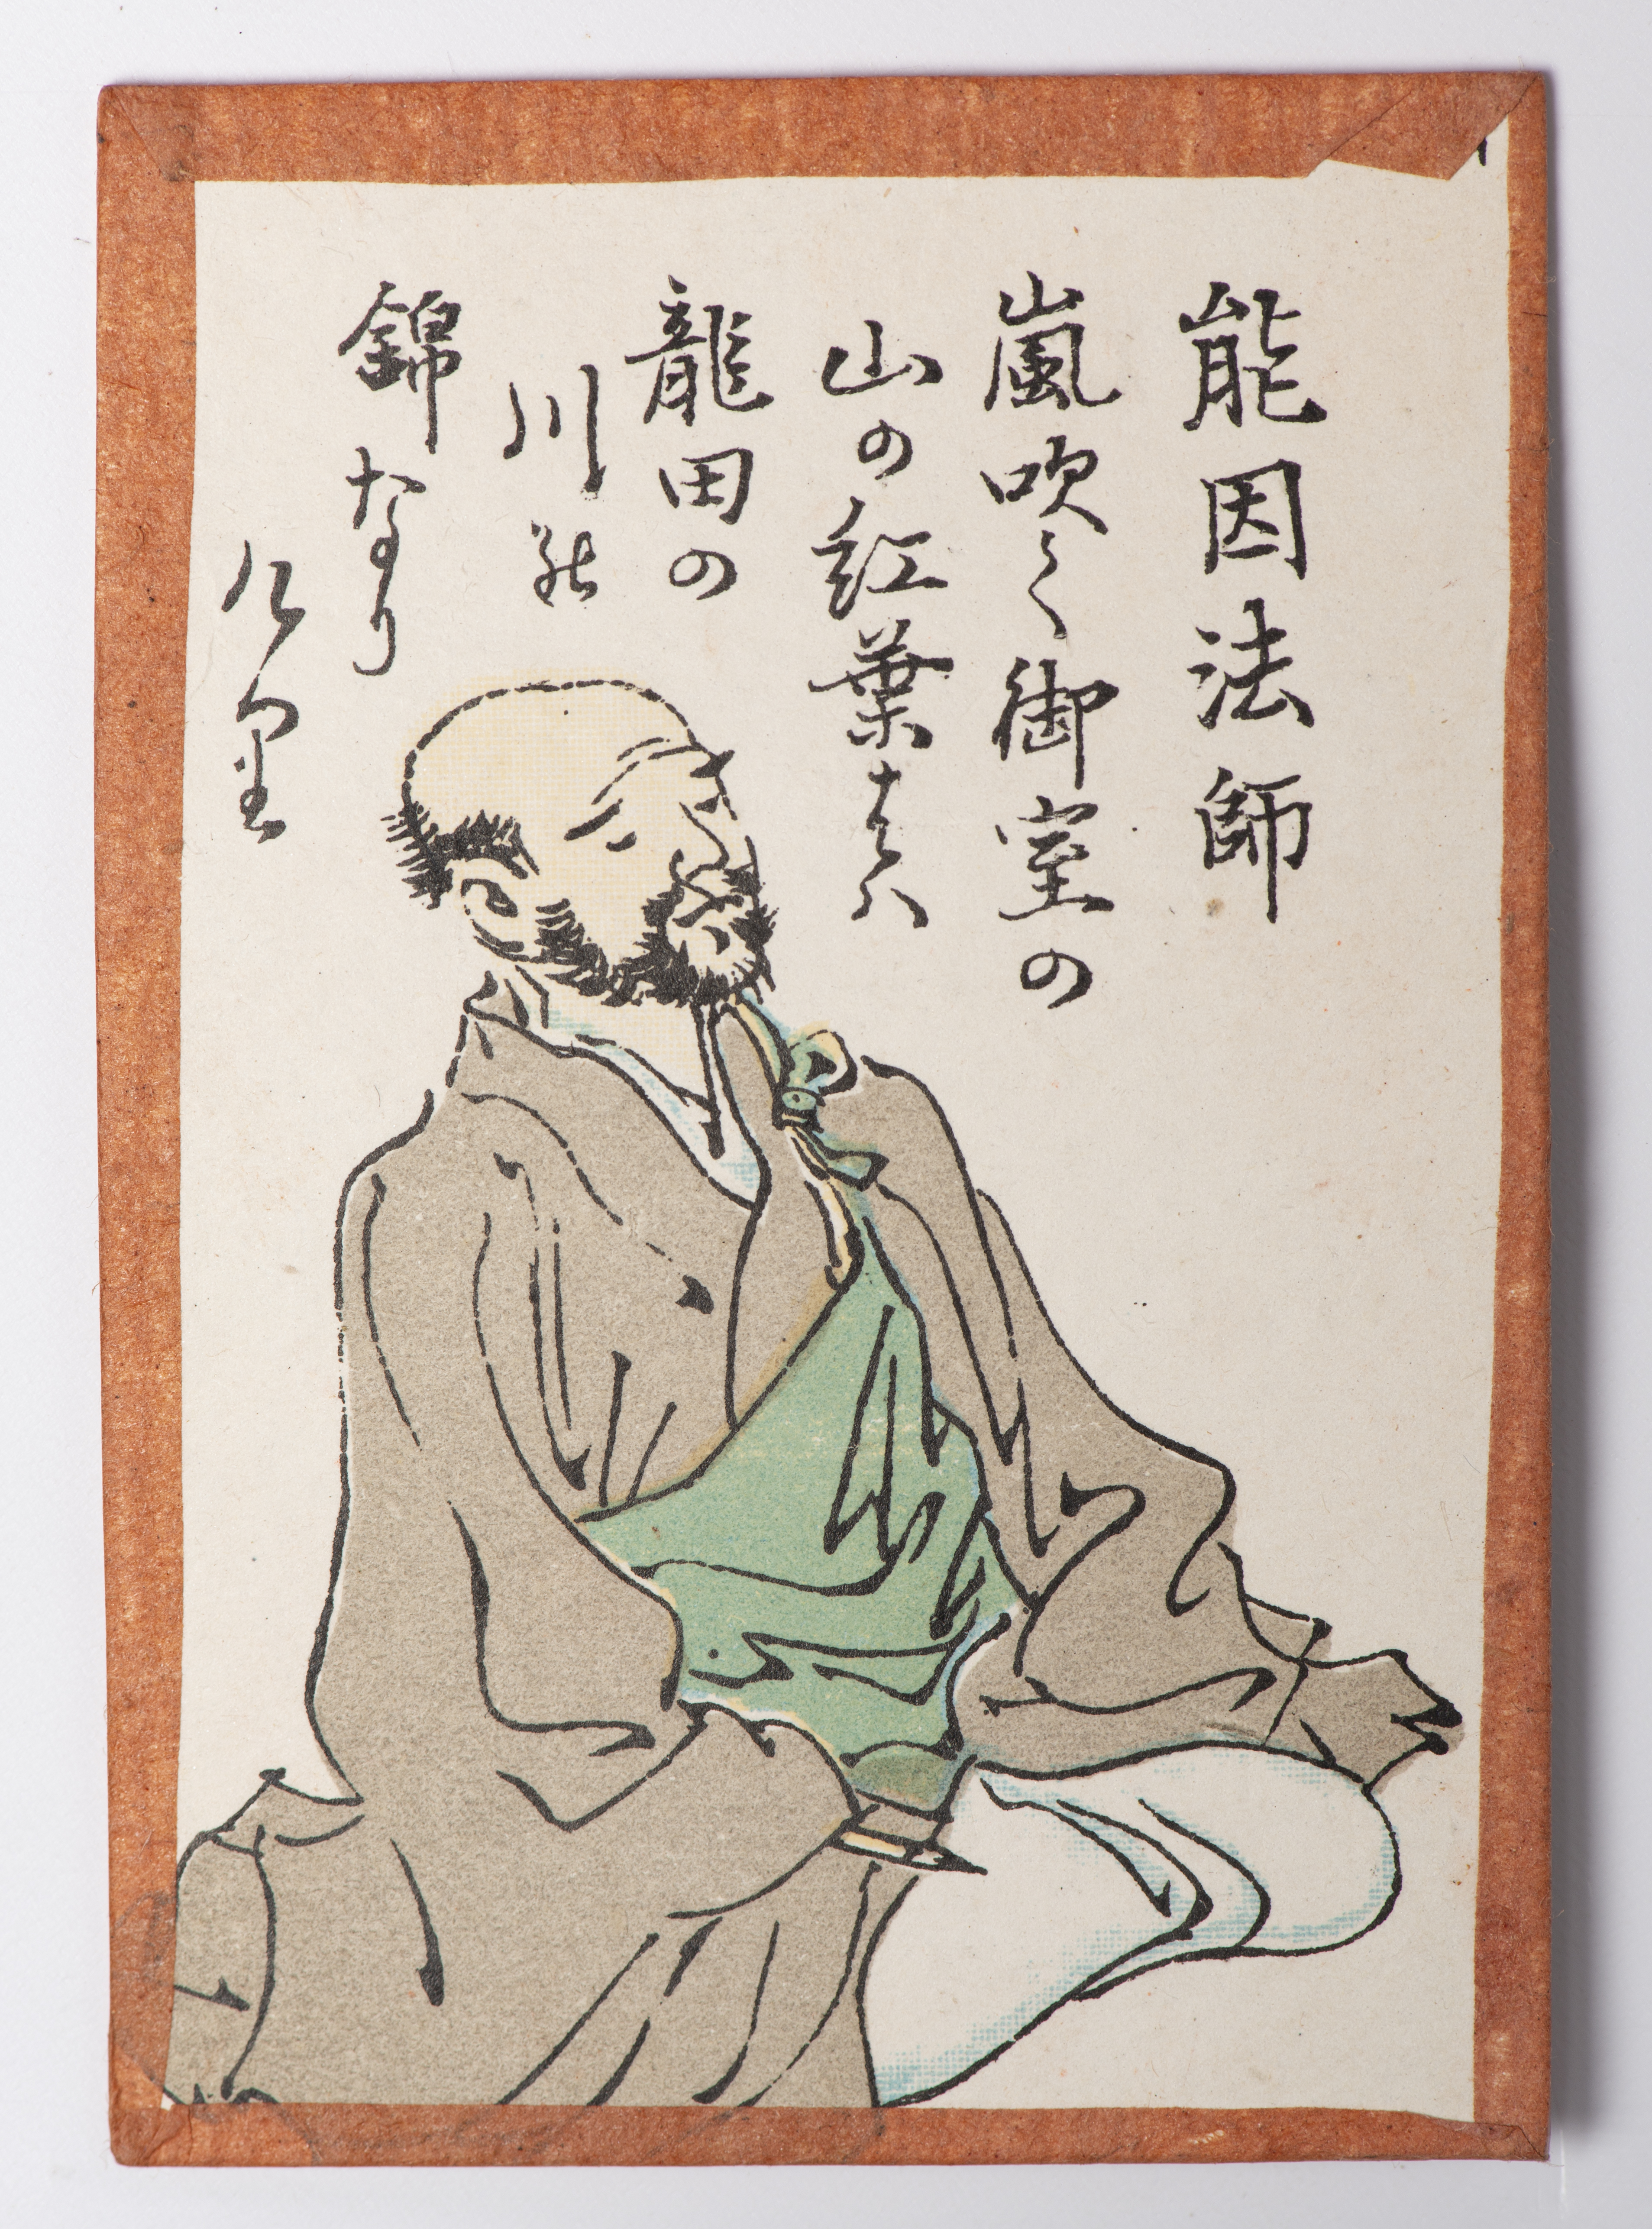 能因法師
嵐吹く御室の
山の紅葉者ハ
龍田の
川能
錦なり
け里